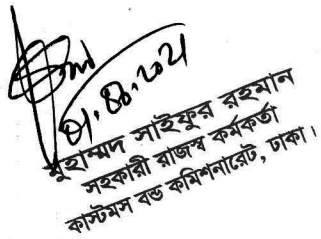 ০১.১০.২০২১
মুহাম্মদ সাইফুর রহমান
সহকারী রাজস্ব কর্মকর্তা
কাস্টমস বন্ড কমিশনারেট, ঢাকা।